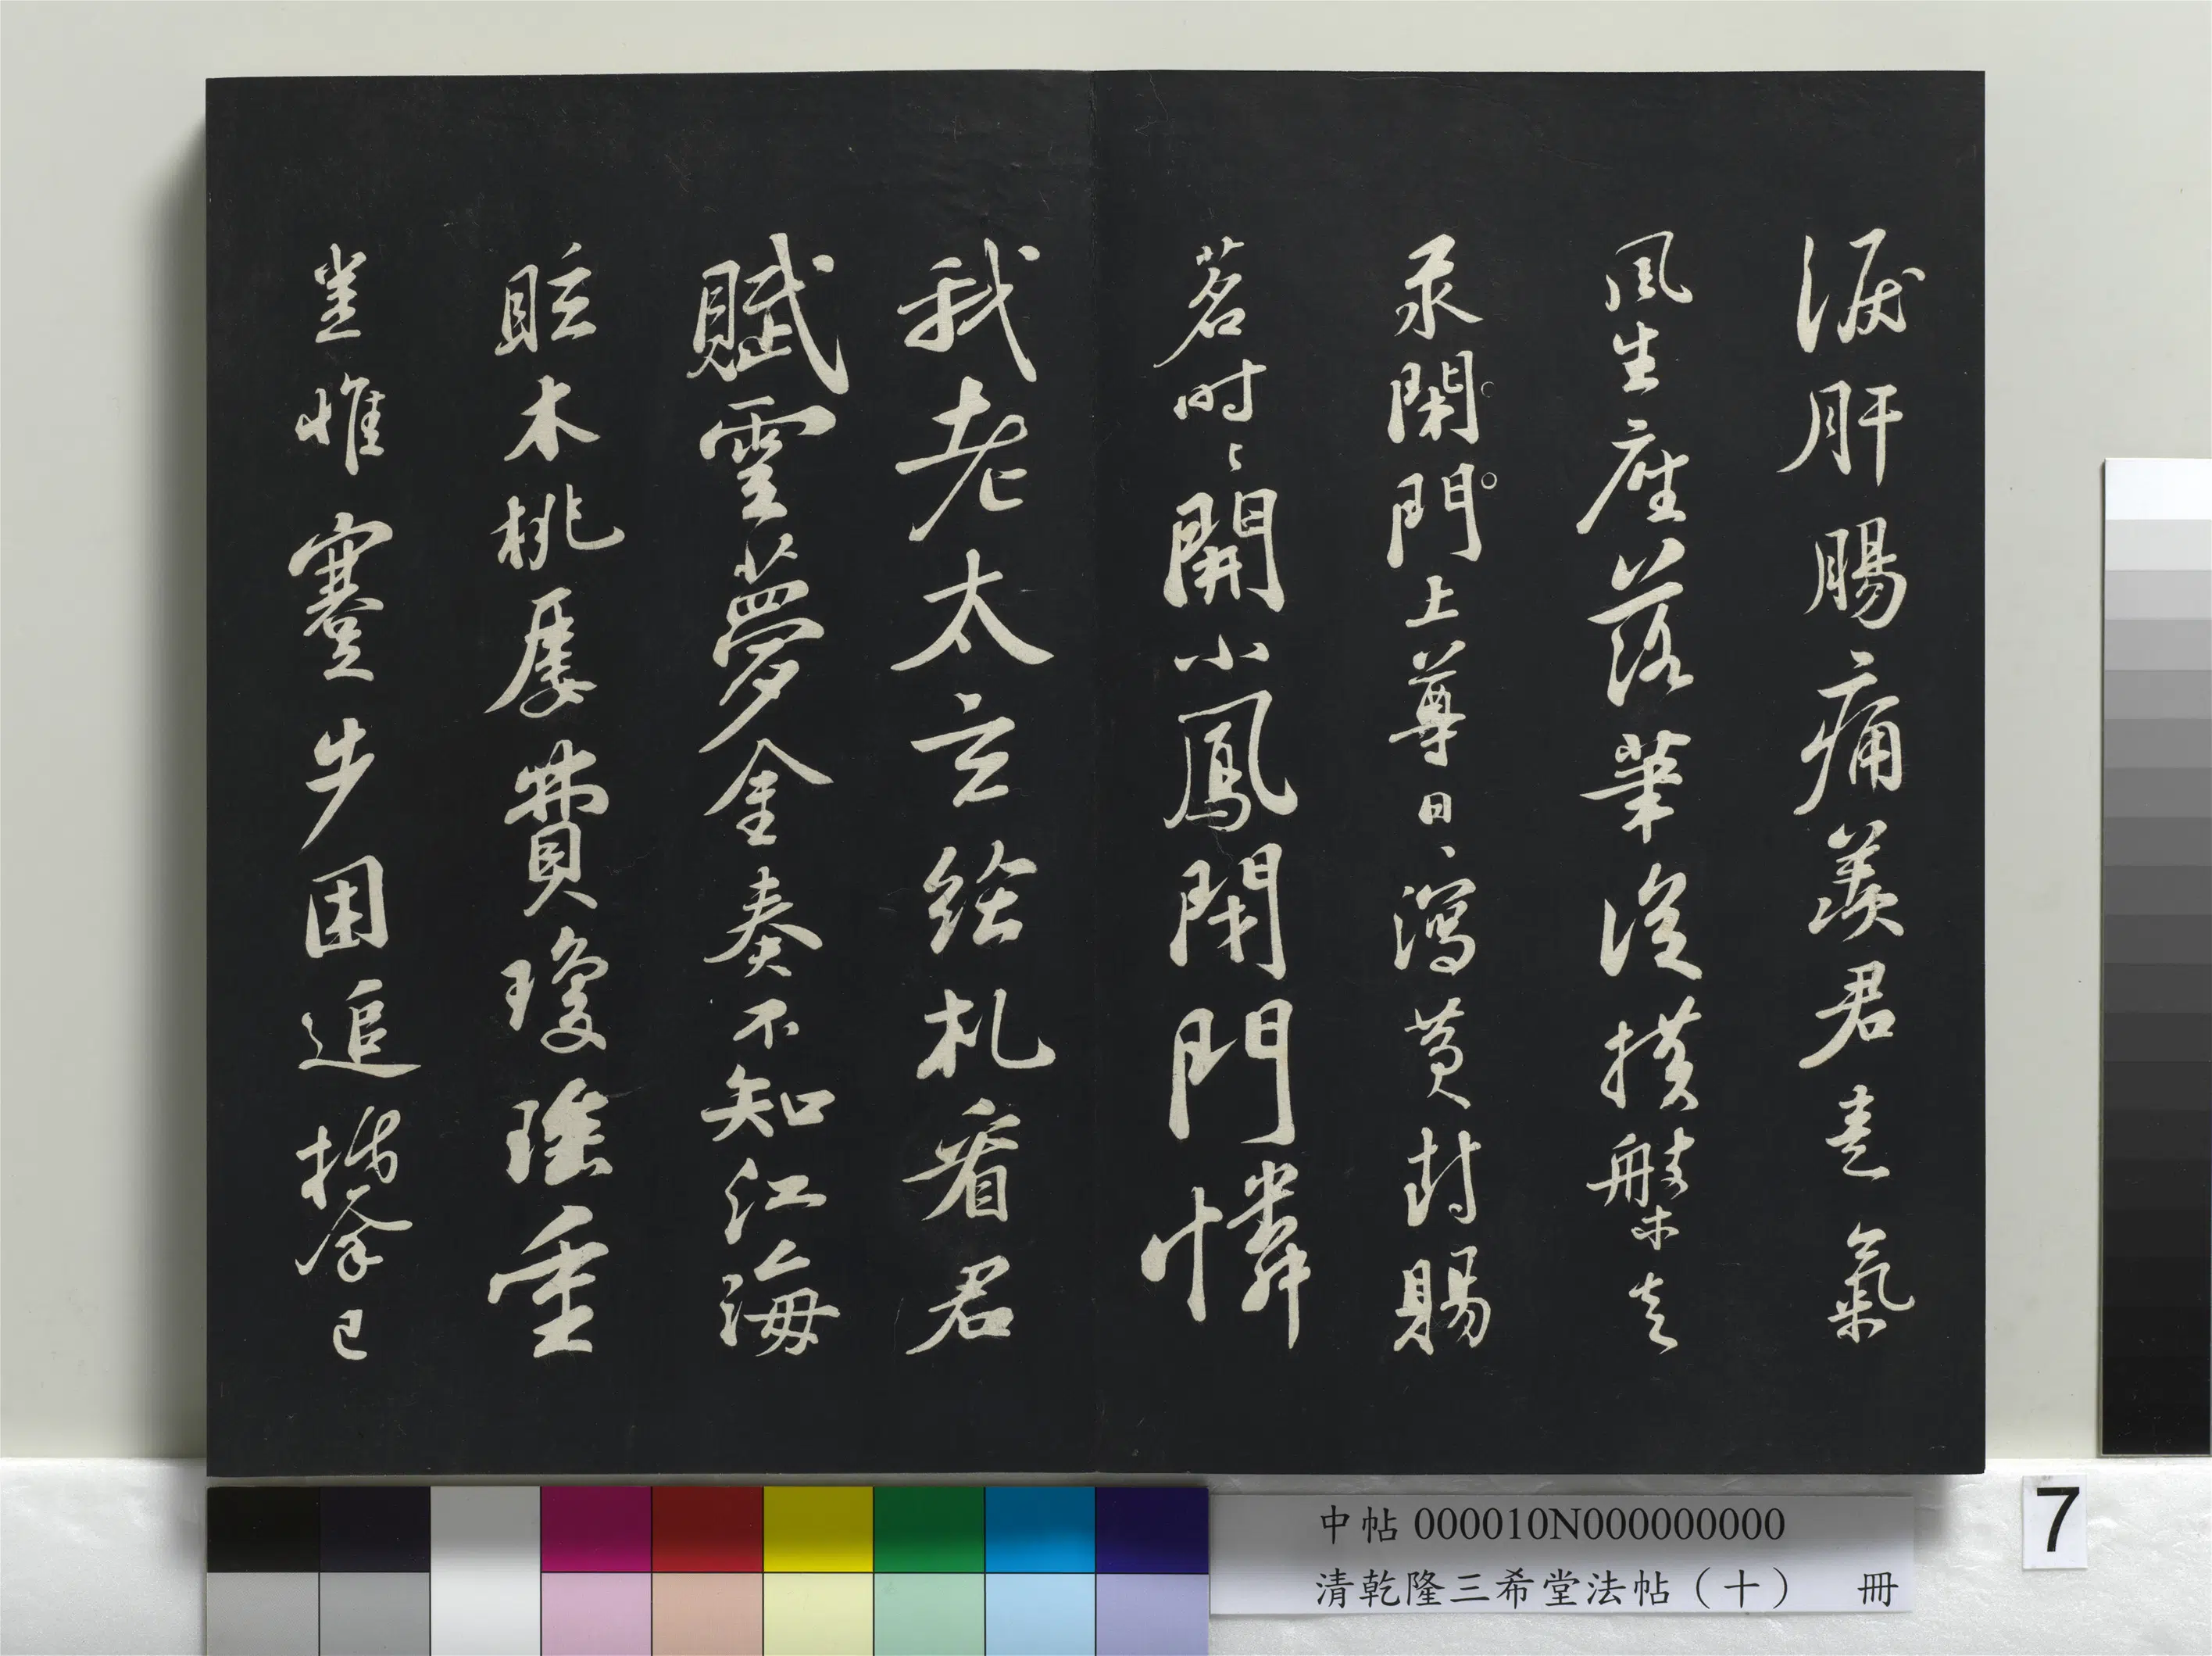 淚肝腸痛羨君意氣
風生座落筆從橫槃走
汞閉門上尊日々瀉黃封賜
茗時々開小鳳閉門憐
我老太玄給札看君
賦雲夢金奏不知江海
眩木桃屢費瓊瑤重
豈惟蹇步困追攀已
中帖 000010N000000000
清乾隆三希堂法帖（十） 冊
7